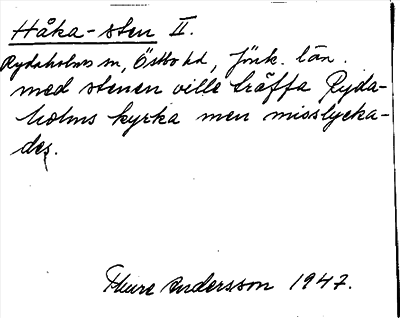 Håka-sten II.
Rydaholms sn, Östbo hd, Jönk. län.
med stenen ville träffa Ryda-
holms kyrka men misslycka-
des.
Thure Andersson 1947.